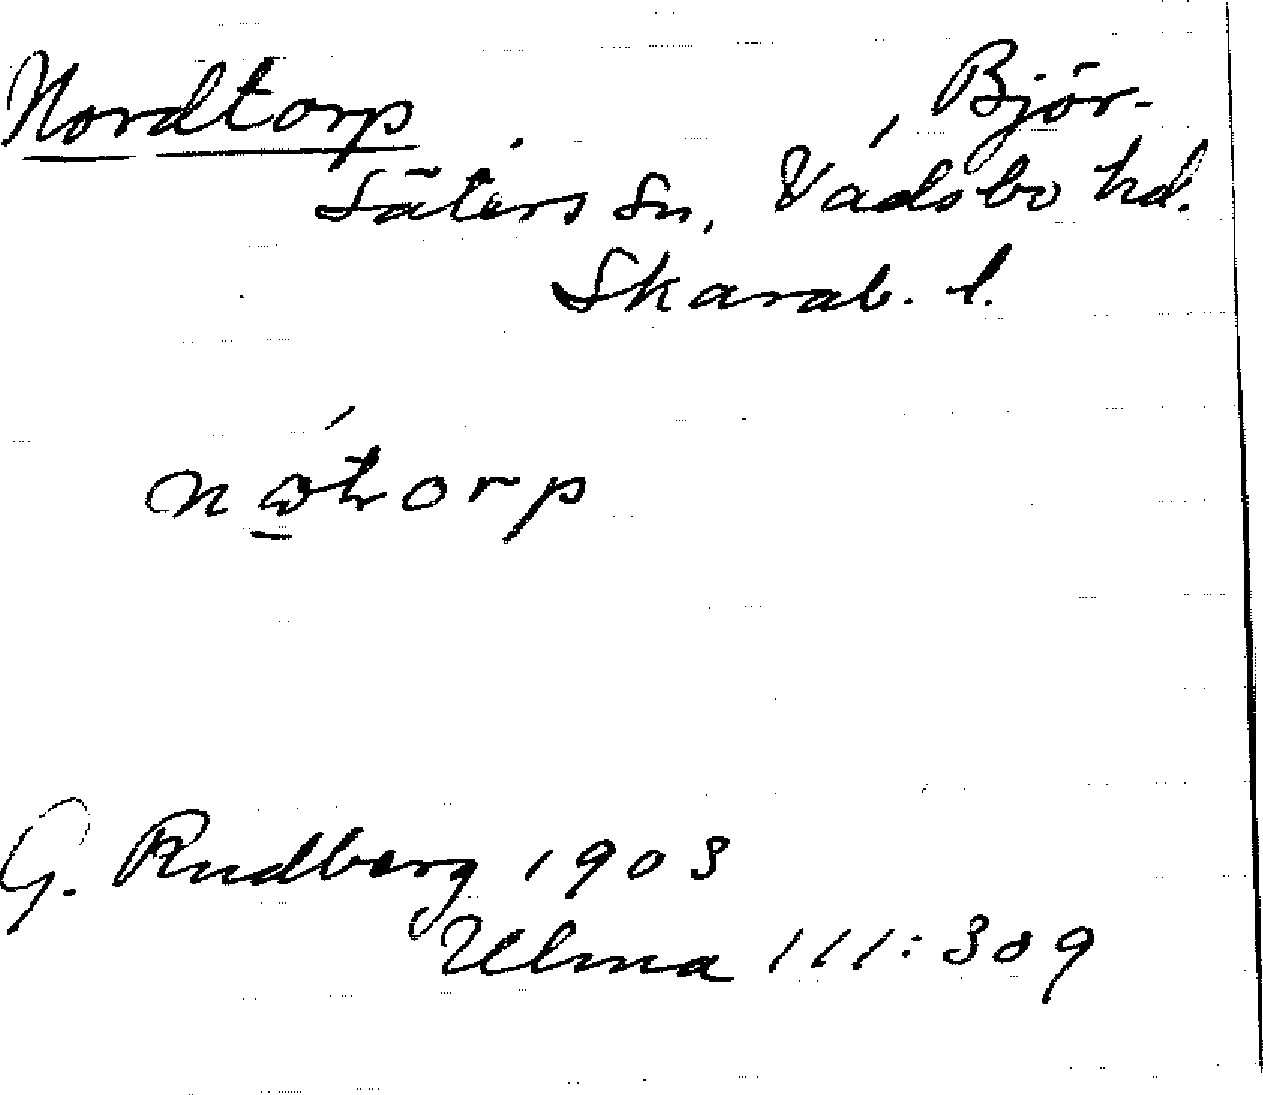 Nordtorp , Björ-
säters sn, Vadsbo hd.
Skarab. l.
G. Rudberg 1903
Ulma 111:309